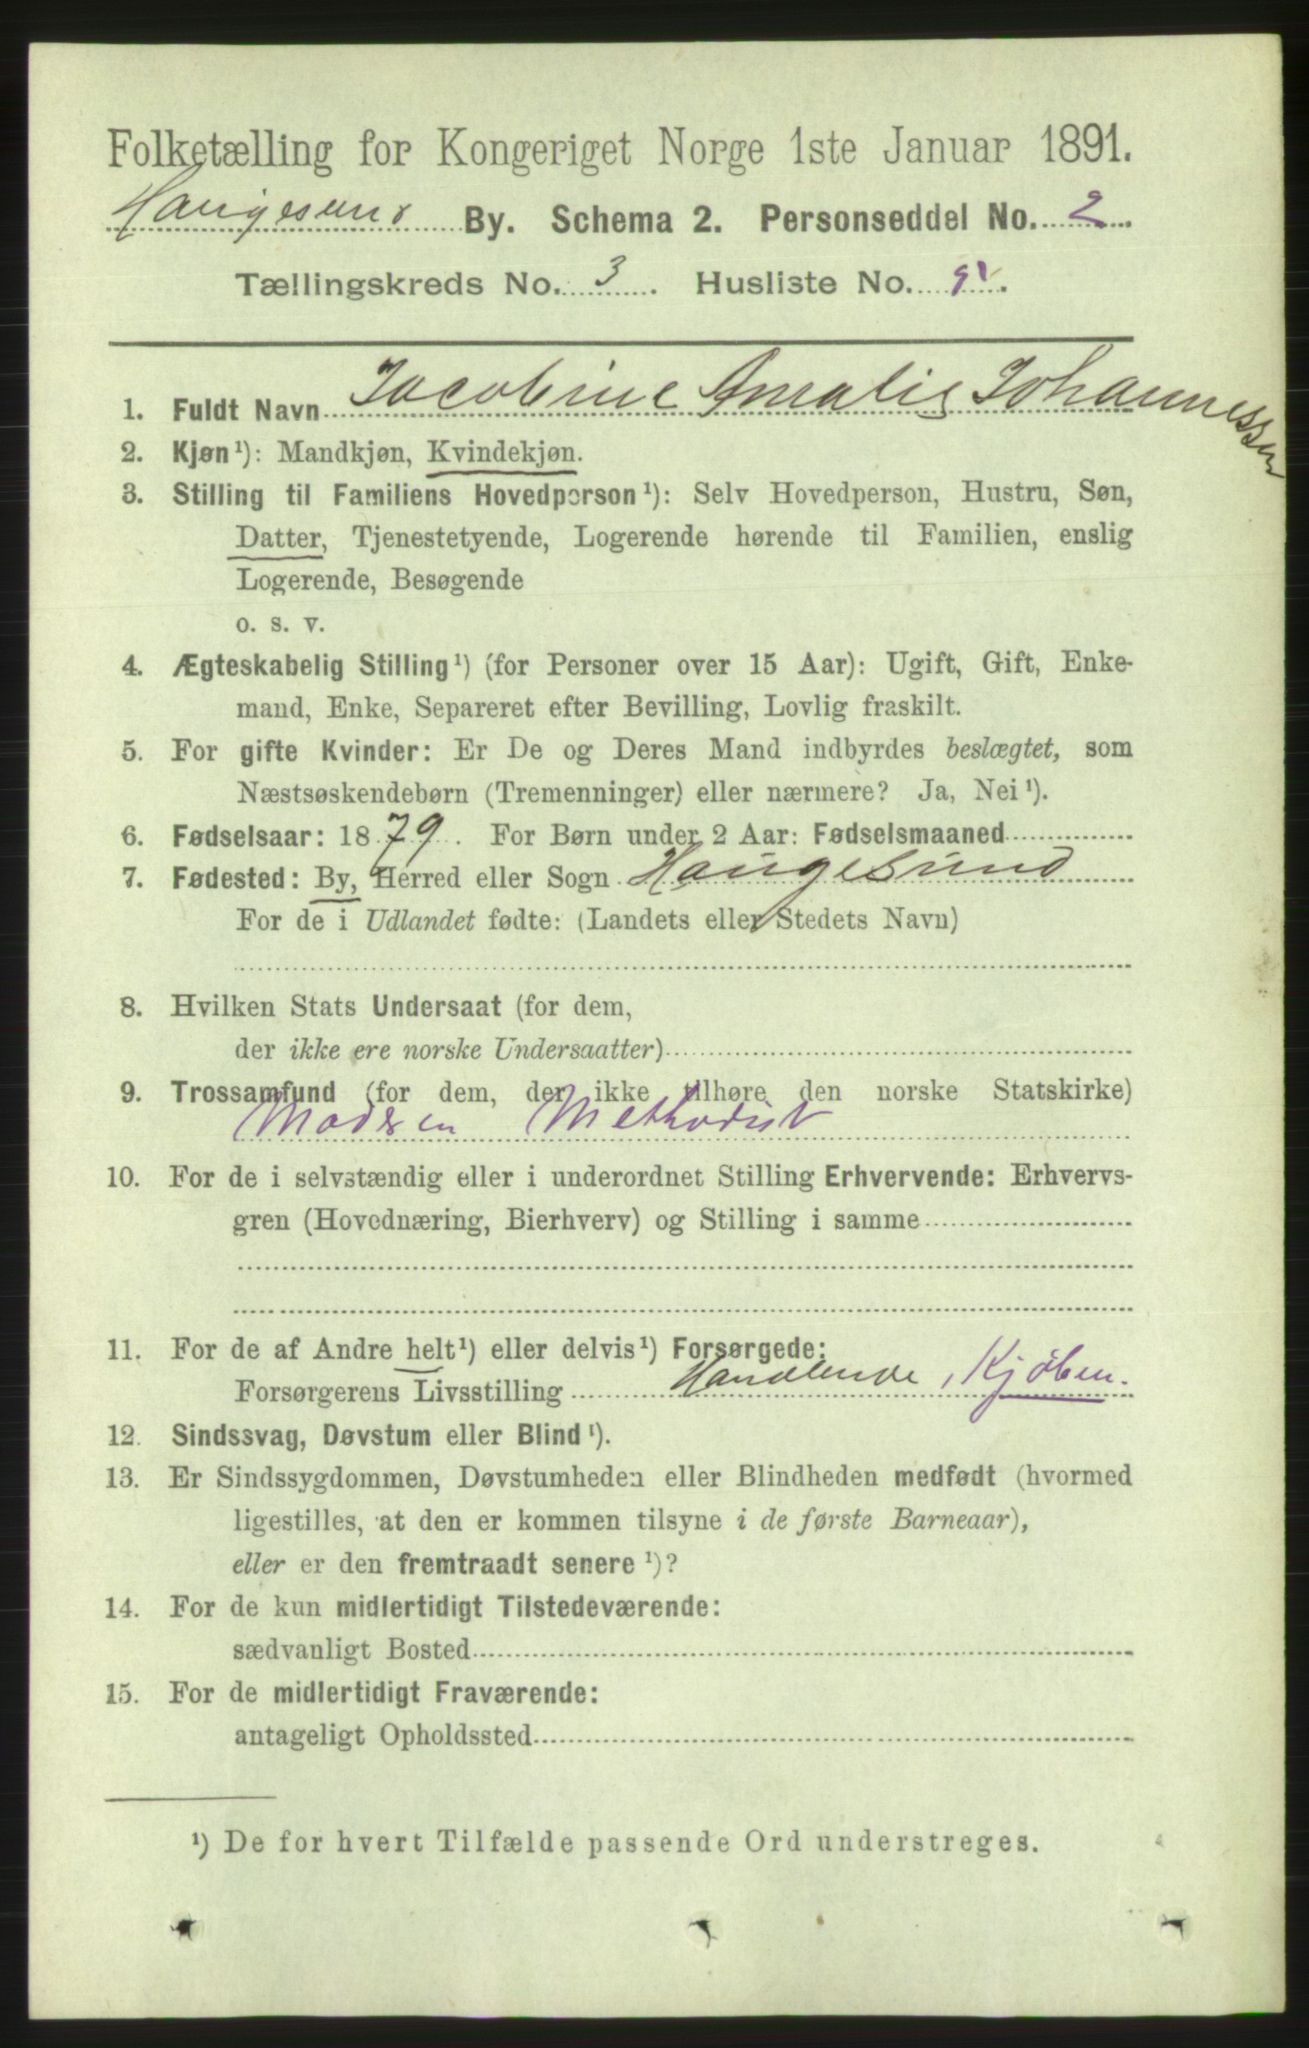 Folketælling for Kongeriget Norge 1ste Januar 1891.
Haugesund By. Schema 2. Personseddel No. 2.
Tællingskreds No. 3. Husliste No. 91.
1. Fuldt Navn Jacobine Amalie Johannessen
2. Kjøn¹): Mandkjøn, Kvindekjøn.
3. Stilling til Familiens Hovedperson¹): Selv Hovedperson, Hustru, Søn,
Datter, Tjenestetyende, Logerende hørende til Familien, enslig
Logerende, Besøgende
o. s. v.
4. Ægteskabelig Stilling¹) (for Personer over 15 Aar): Ugift, Gift, Enke-
mand, Enke, Separeret efter Bevilling, Lovlig fraskilt.
5. For gifte Kvinder: Er De og Deres Mand indbyrdes beslægtet, som
Næstsøskendebørn (Tremenninger) eller nærmere? Ja, Nei¹).
6. Fødselsaar: 1879. For Børn under 2 Aar: Fødselsmaaned
7. Fødested: By, Herred eller Sogn Haugesund
For de i Udlandet fødte: (Landets eller Stedets Navn)
8. Hvilken Stats Undersaat (for dem,
der ikke ere norske Undersaatter)
9. Trossamfund (for dem, der ikke tilhøre den norske Statskirke)
Methodist
10. For de i selvstændig eller i underordnet Stilling Erhvervende: Erhvervs-
gren (Hovednæring, Bierhverv) og Stilling i samme
11. For de af Andre helt¹) eller delvis¹) Forsørgede:
Forsørgerens Livsstilling Handlende, Kjøben.
12. Sindssvag, Døvstum eller Blind¹).
13. Er Sindssygdommen, Døvstumheden eller Blindheden medfødt (hvormed
ligestilles, at den er kommen tilsyne i de første Barneaar),
eller er den fremtraadt senere¹)?
14. For de kun midlertidigt Tilstedeværende:
sædvanligt Bosted
15. For de midlertidigt Fraværende:
antageligt Opholdssted
¹) De for hvert Tilfælde passende Ord understreges.